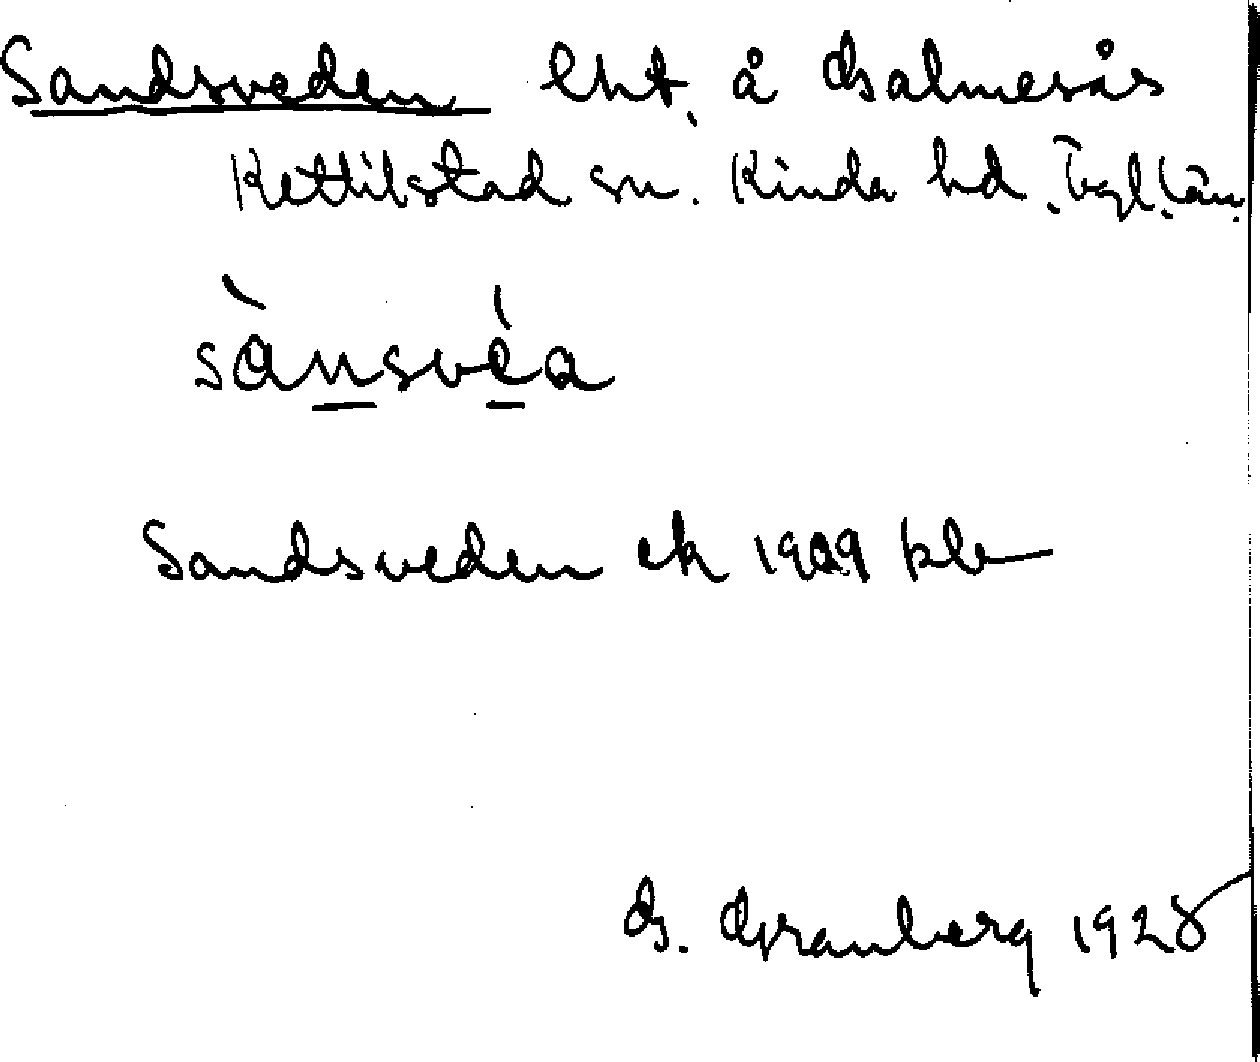 Sandsveden lht. å Galmesås
Kettilstad sn. Kinda hd. Ög. län.
sànsvéa
Sandsveden ek 1909 kbr
G. Granberg 1928